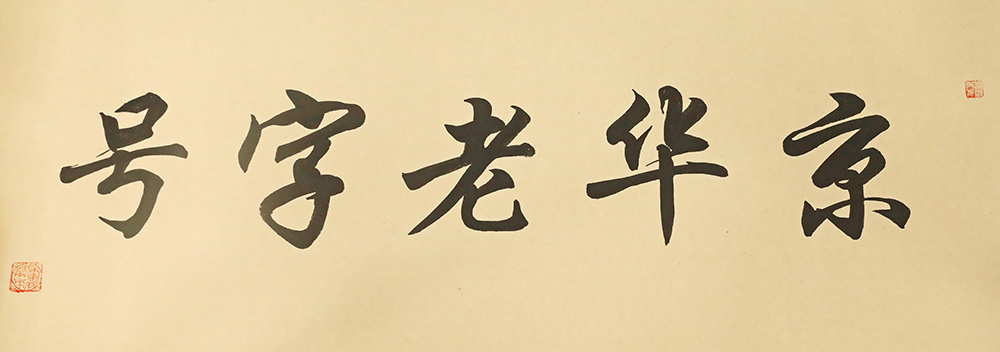 京华老字号